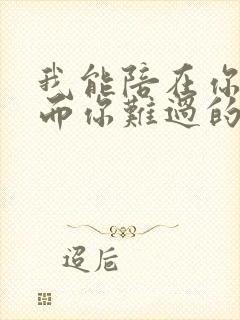 我能陪在你
而你難過的